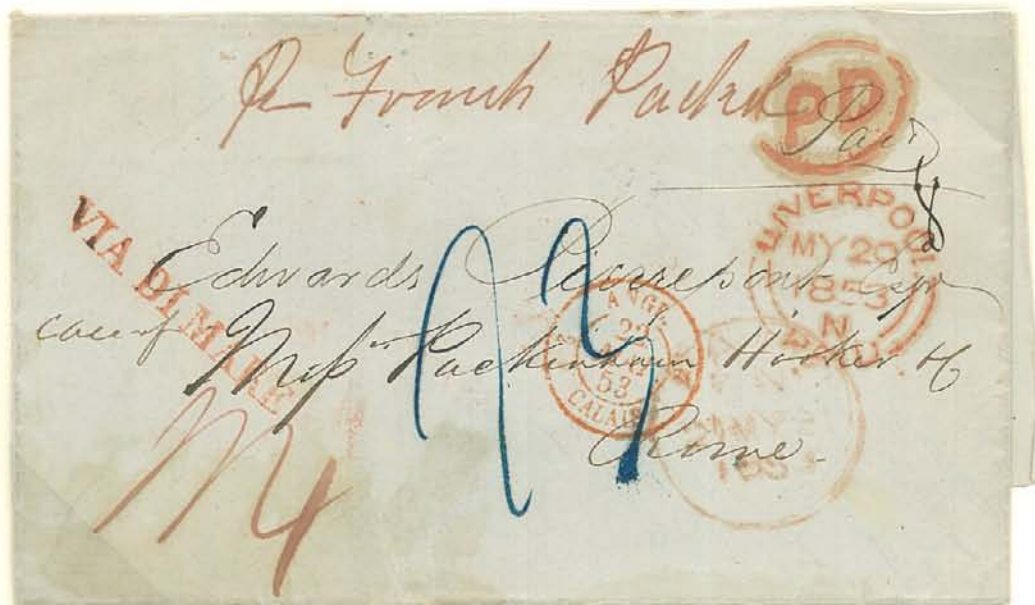 Pr French Packet
PD
Paid
LIVERPOOL
MY 20
1853
N
VIA DI MARE
Edwards Pierrepont Esqr
care of Messrs Packenham Hooker & Co
Rome
ANGL.
53
CALAIS
MY
185